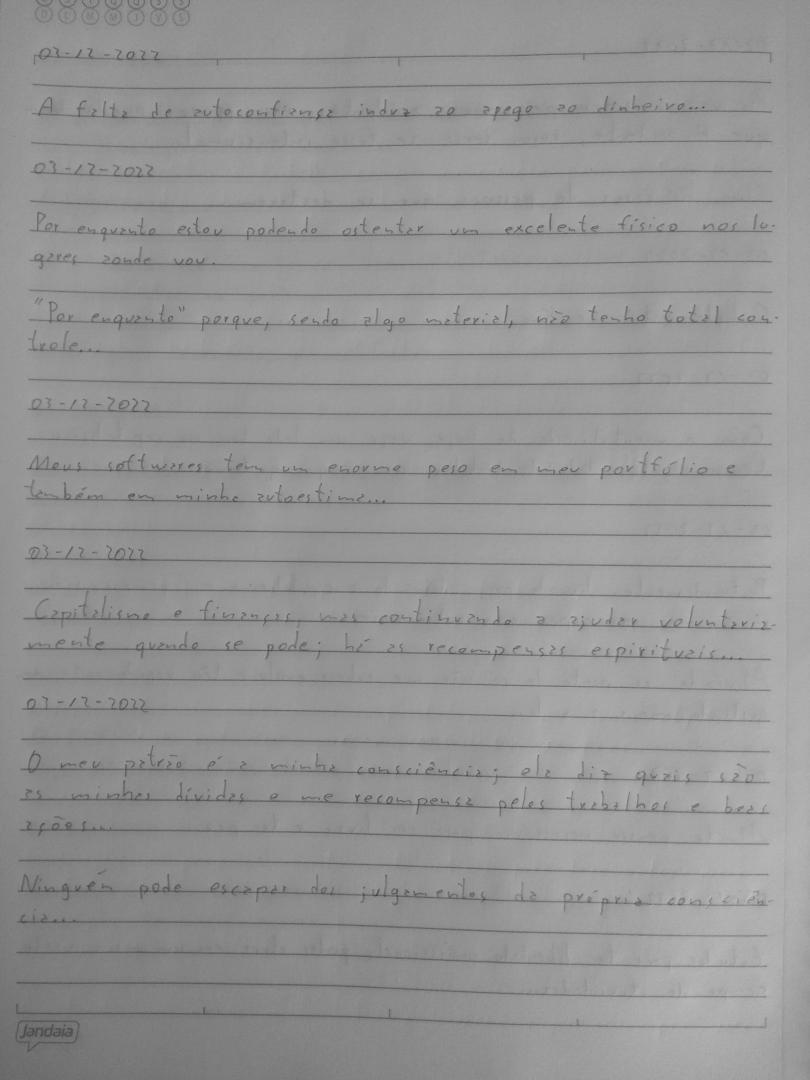 03-12-2022
A falta de autoconfiança induz ao apego ao dinheiro...
03-12-2022
Por enquanto estou podendo ostentar um excelente físico nos lu-
gares aonde vou.
"Por enquanto" porque, sendo algo material, não tenho total con-
trole...
03-12-2022
Meus softwares tem um enorme peso em meu portfólio e
também em minha autoestima...
03-12-2022
Capitalismo e finanças, mas continuando a ajudar voluntaria-
mente quando se pode; há as recompensas espirituais...
03-12-2022
O meu patrão é a minha consciência; ela diz quais são
as minhas dívidas e me recompensa pelos trabalhos e boas
ações...
Ninguém pode escapar dos julgamentos da própria consciên-
cia...
Jandaia